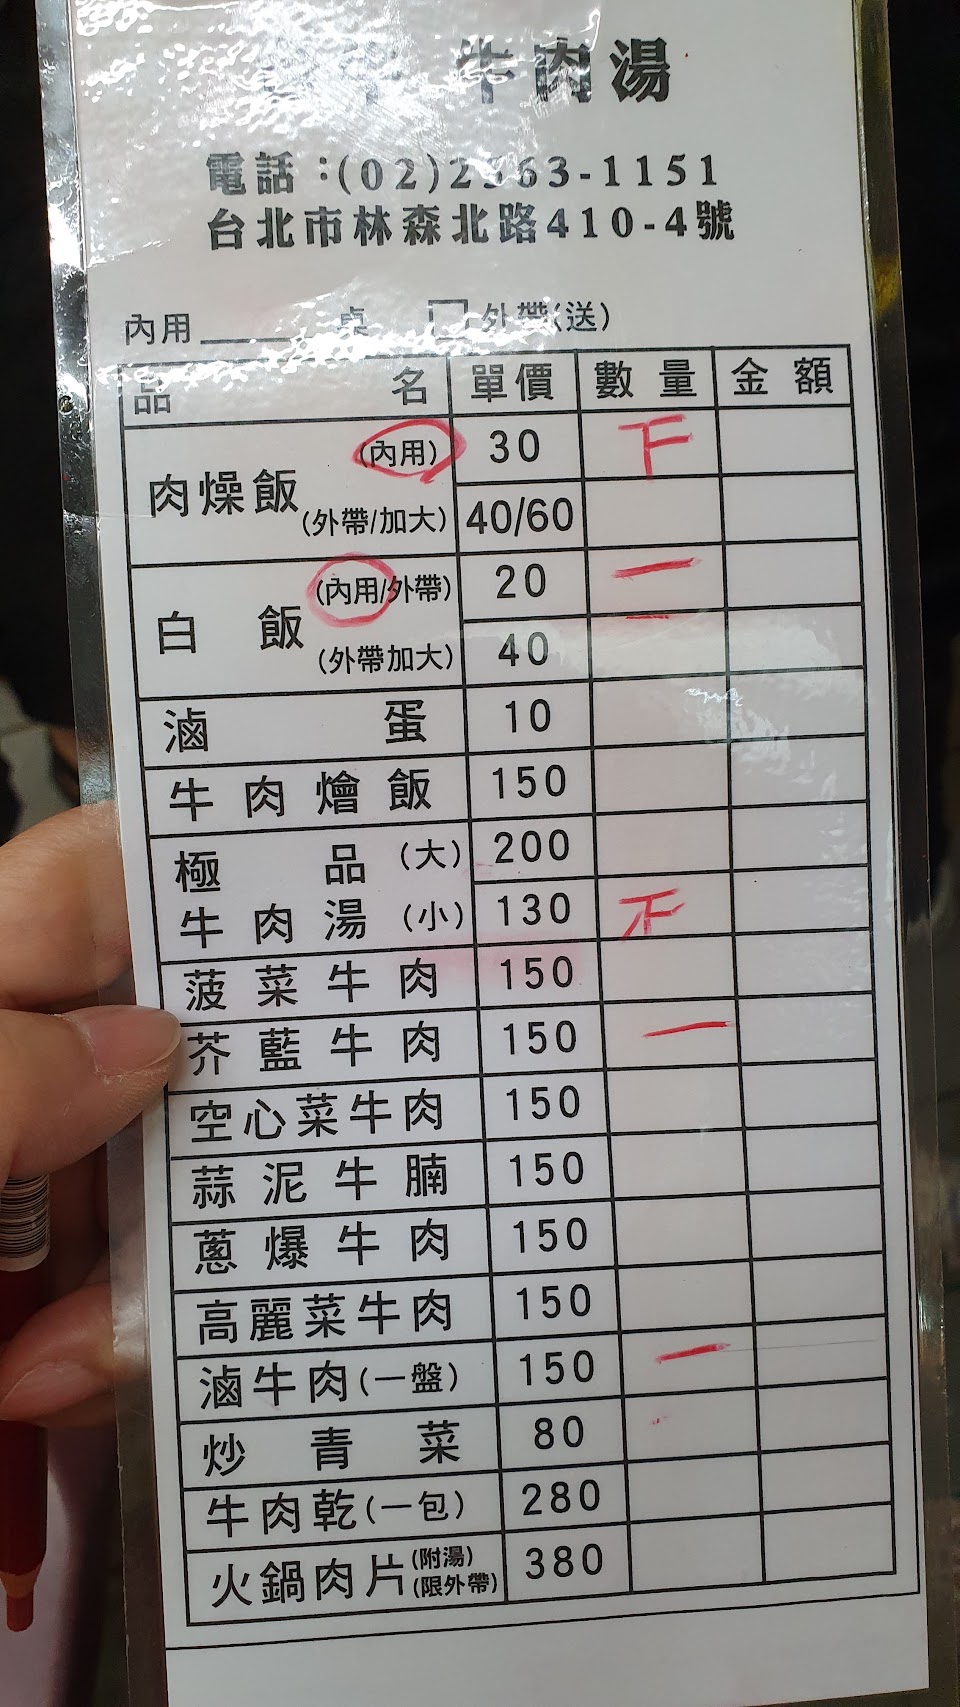 牛肉湯
電話:(02)2563-1151
台北市林森北路410-4號
內用____桌 □外帶(送)
品名 單價 數量 金額
肉燥飯 (內用) 30 下
(外帶/加大) 40/60
白飯 (內用/外帶) 20 一
(外帶加大) 40
滷蛋 10
牛肉燴飯 150
極品 (大) 200
牛肉湯 (小) 130
菠菜牛肉 150
芥藍牛肉 150 一
空心菜牛肉 150
蒜泥牛腩 150
蔥爆牛肉 150
高麗菜牛肉 150
滷牛肉(一盤) 150 一
炒青菜 80
牛肉乾(一包) 280
火鍋肉片(附湯)(限外帶) 380